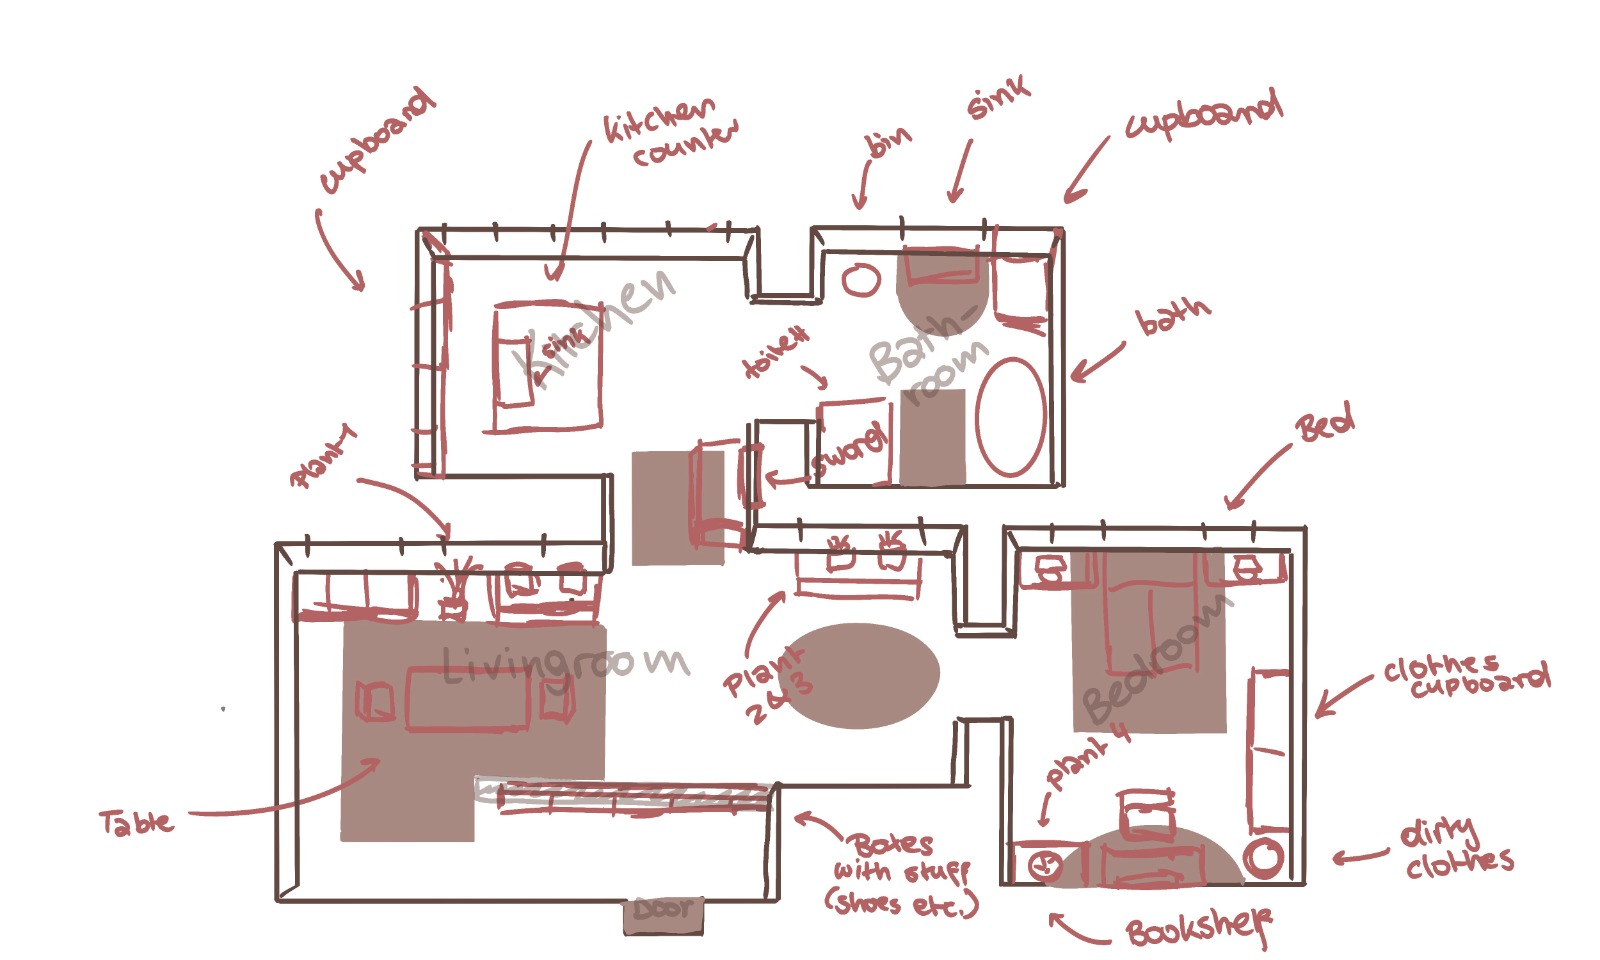 cupboard
kitchen
counter
bin
sink
cupboard
Kitchen
sink
Bath-
room
toilett
bath
sword
Plant 1
Bed
Livingroom
Plant
2 & 3
Bedroom
clothes
cupboard
plant 4
Table
Boxes
with stuff
(shoes etc.)
dirty
clothes
Door
Bookshelf